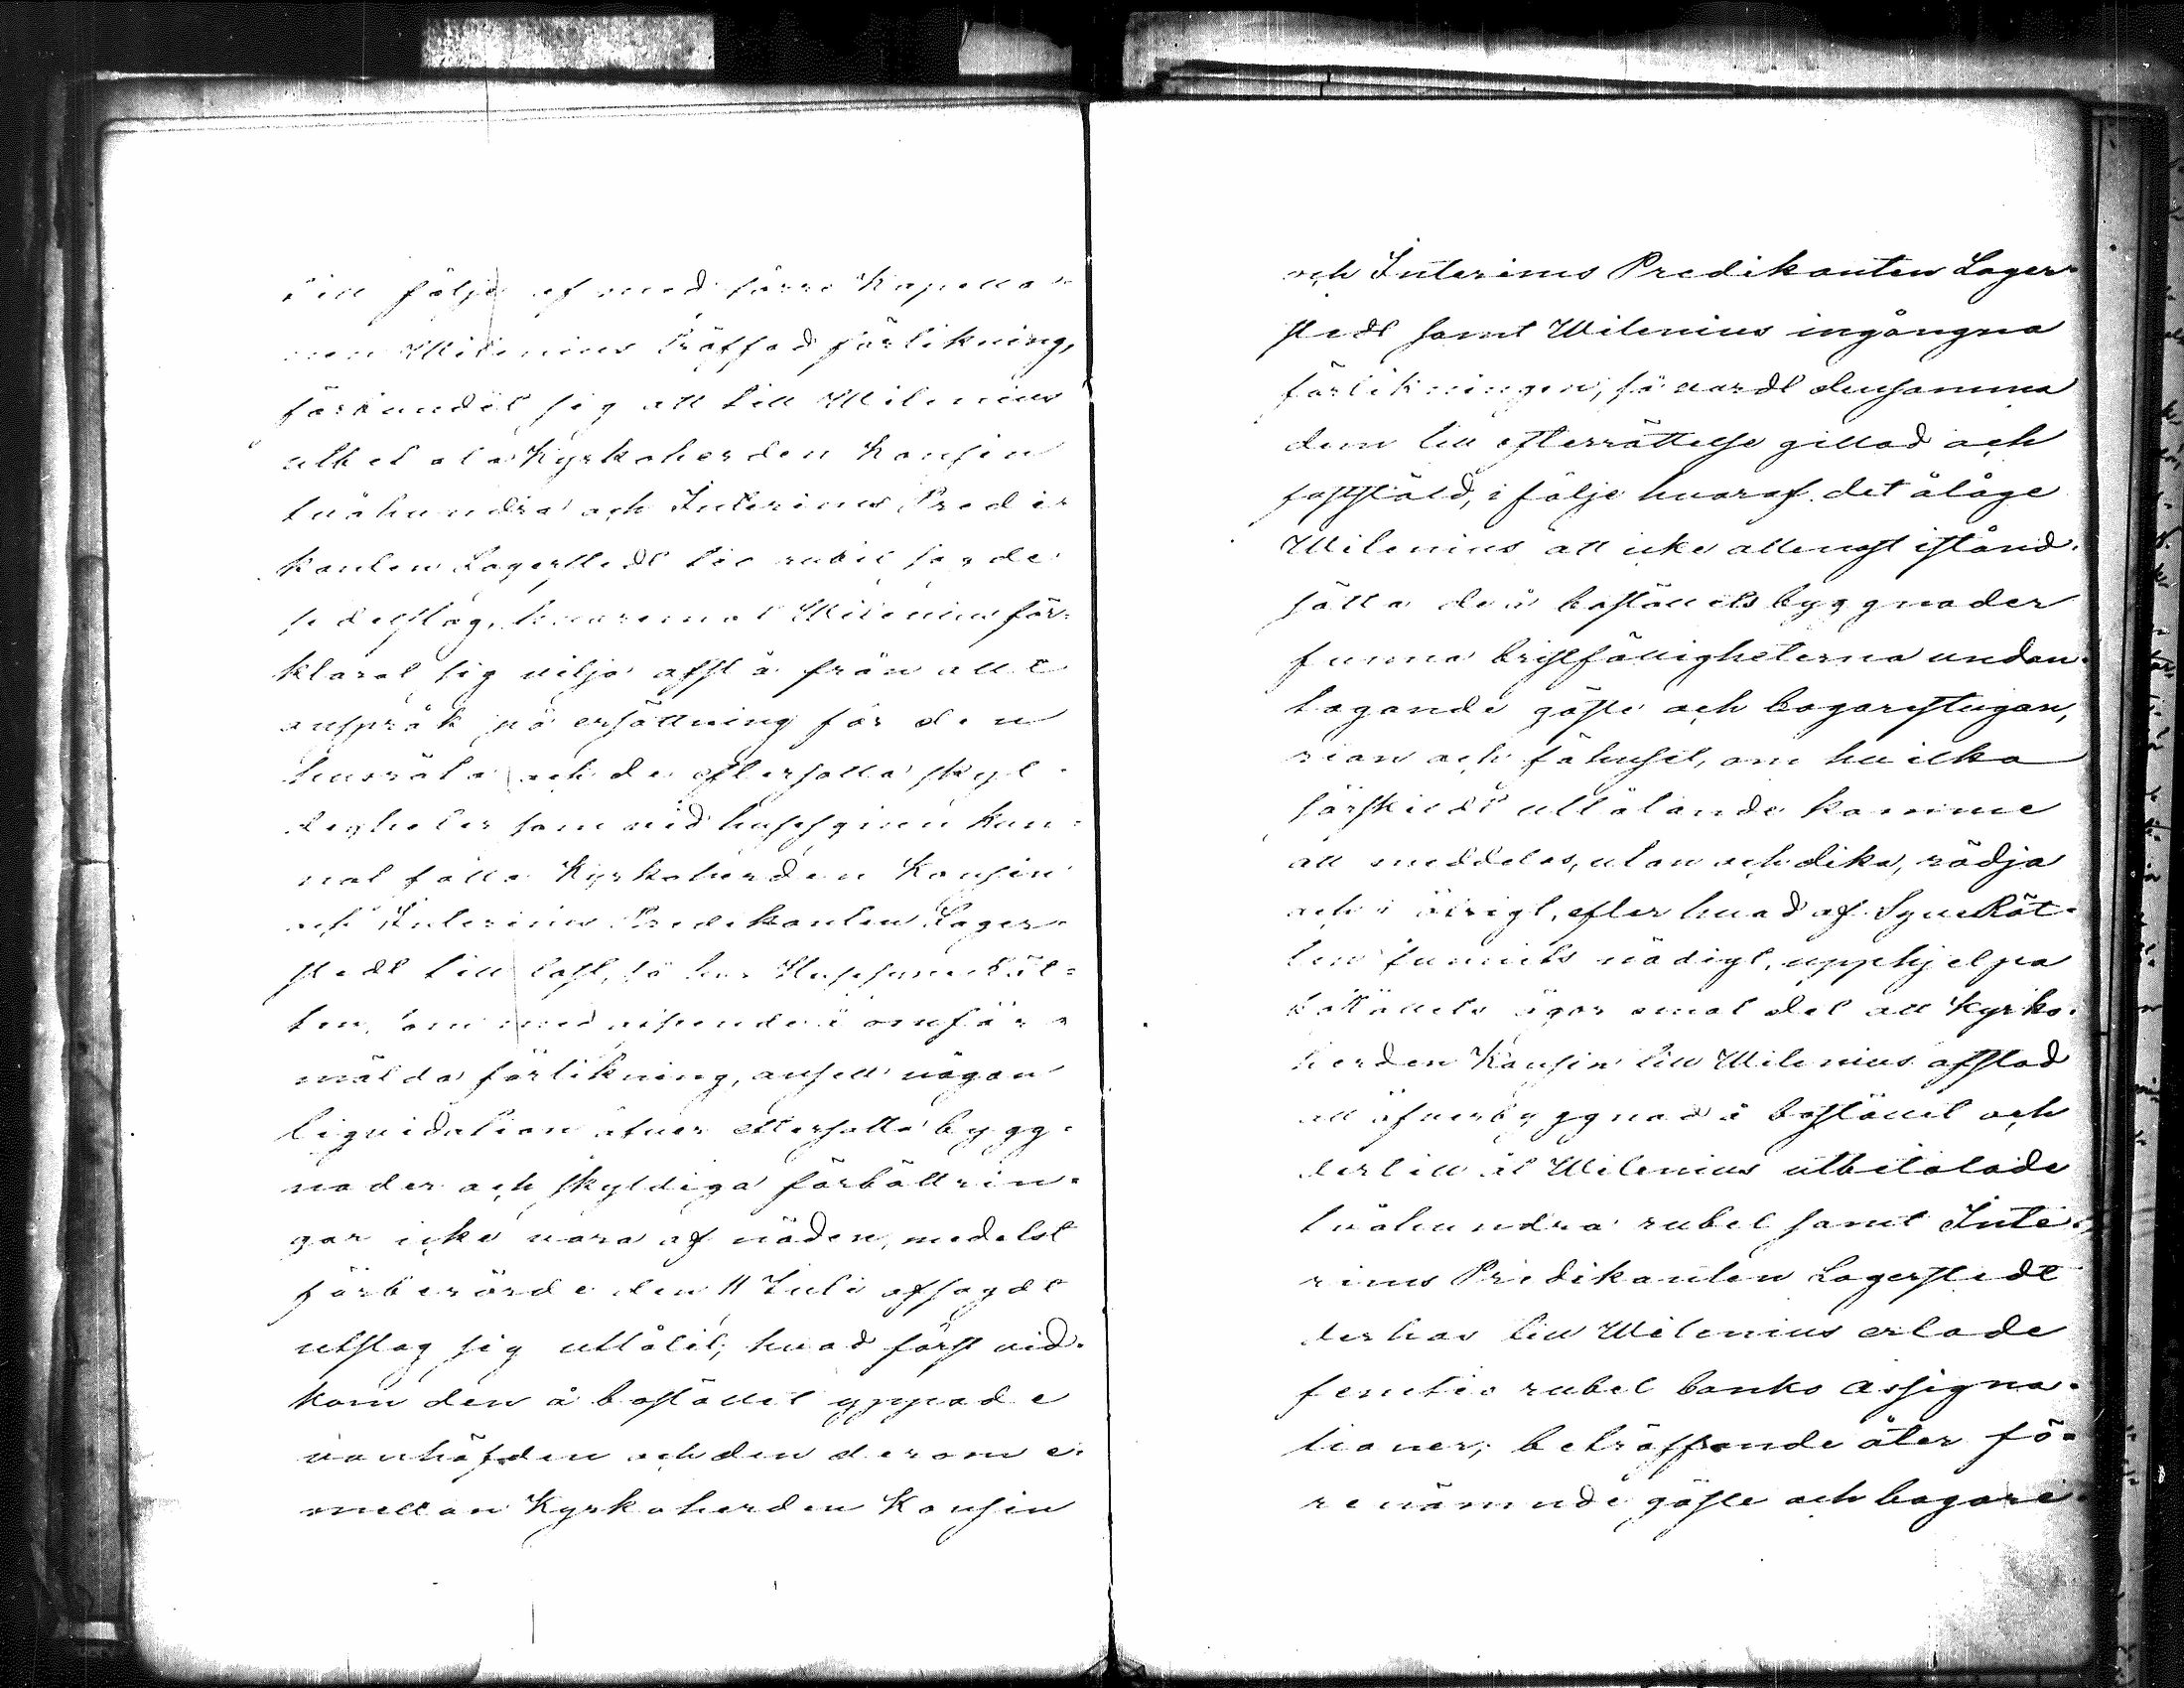 till följe af med förre Kapella-
nen Wilenius träffad förlikning,
förbundit sig att till Wilenius
utbetala Kyrkoherden Konsin
tvåhundra och Interims Predi-
kanten Lagerstedt tio rubel
sedelslag, hvaremot Wilenius för-
klarat sig vilja afstå från allt
anspråk på ersättning för den
husröta och de eftersatta skyl-
digheter som vid husesynen kun-
nat falla Kyrkoherden Konsin
och Interims Predikanten Lager-
stedt till last, så har HusesyneRät-
ten, som med afseende å omför-
mälda förlikning, ansett någon
liquidation öfver eftersatta bygg-
nader och skyldiga förbättrin-
gar icke vara af nöden, medelst
förberörde den 11 Juli afsagdt
utslag sig utlåtit; hvad först vid-
kom den å bostället yppade
vanhäfden och den derom e-
mellan Kyrkoherden Konsin
och Interims Predikanten Lager-
stedt samt Wilenius ingångna
förlikningen, så vardt densamma
dem till efterrättelse gillad och
fastställd, i följe hvaraf det ålåge
Wilenius att icke allenast istånd-
sätta de å boställets byggnader
funna bristfälligheterna undan-
tagande gäste och bagarstugan,
rian och fähuset, om hvilka
särskildt utlåtande komme
att meddelas, utan ock dika, rödja
och i öfrigt, efter hvad af SyneRät-
ten funnits nödigt, upphjelpa
boställets ägor emot det att Kyrko-
herden Konsin till Wilenius afstod
all öfverbyggnad å bostället och
dertill åt Wilenius utbetalade
tvåhundra rubel samt Inte-
rims Predikanten Lagerstedt
derhos till Wilenius erlade
femtio rubel banko assigna-
tioner; beträffande åter fö-
renämnde gäste och bagare-